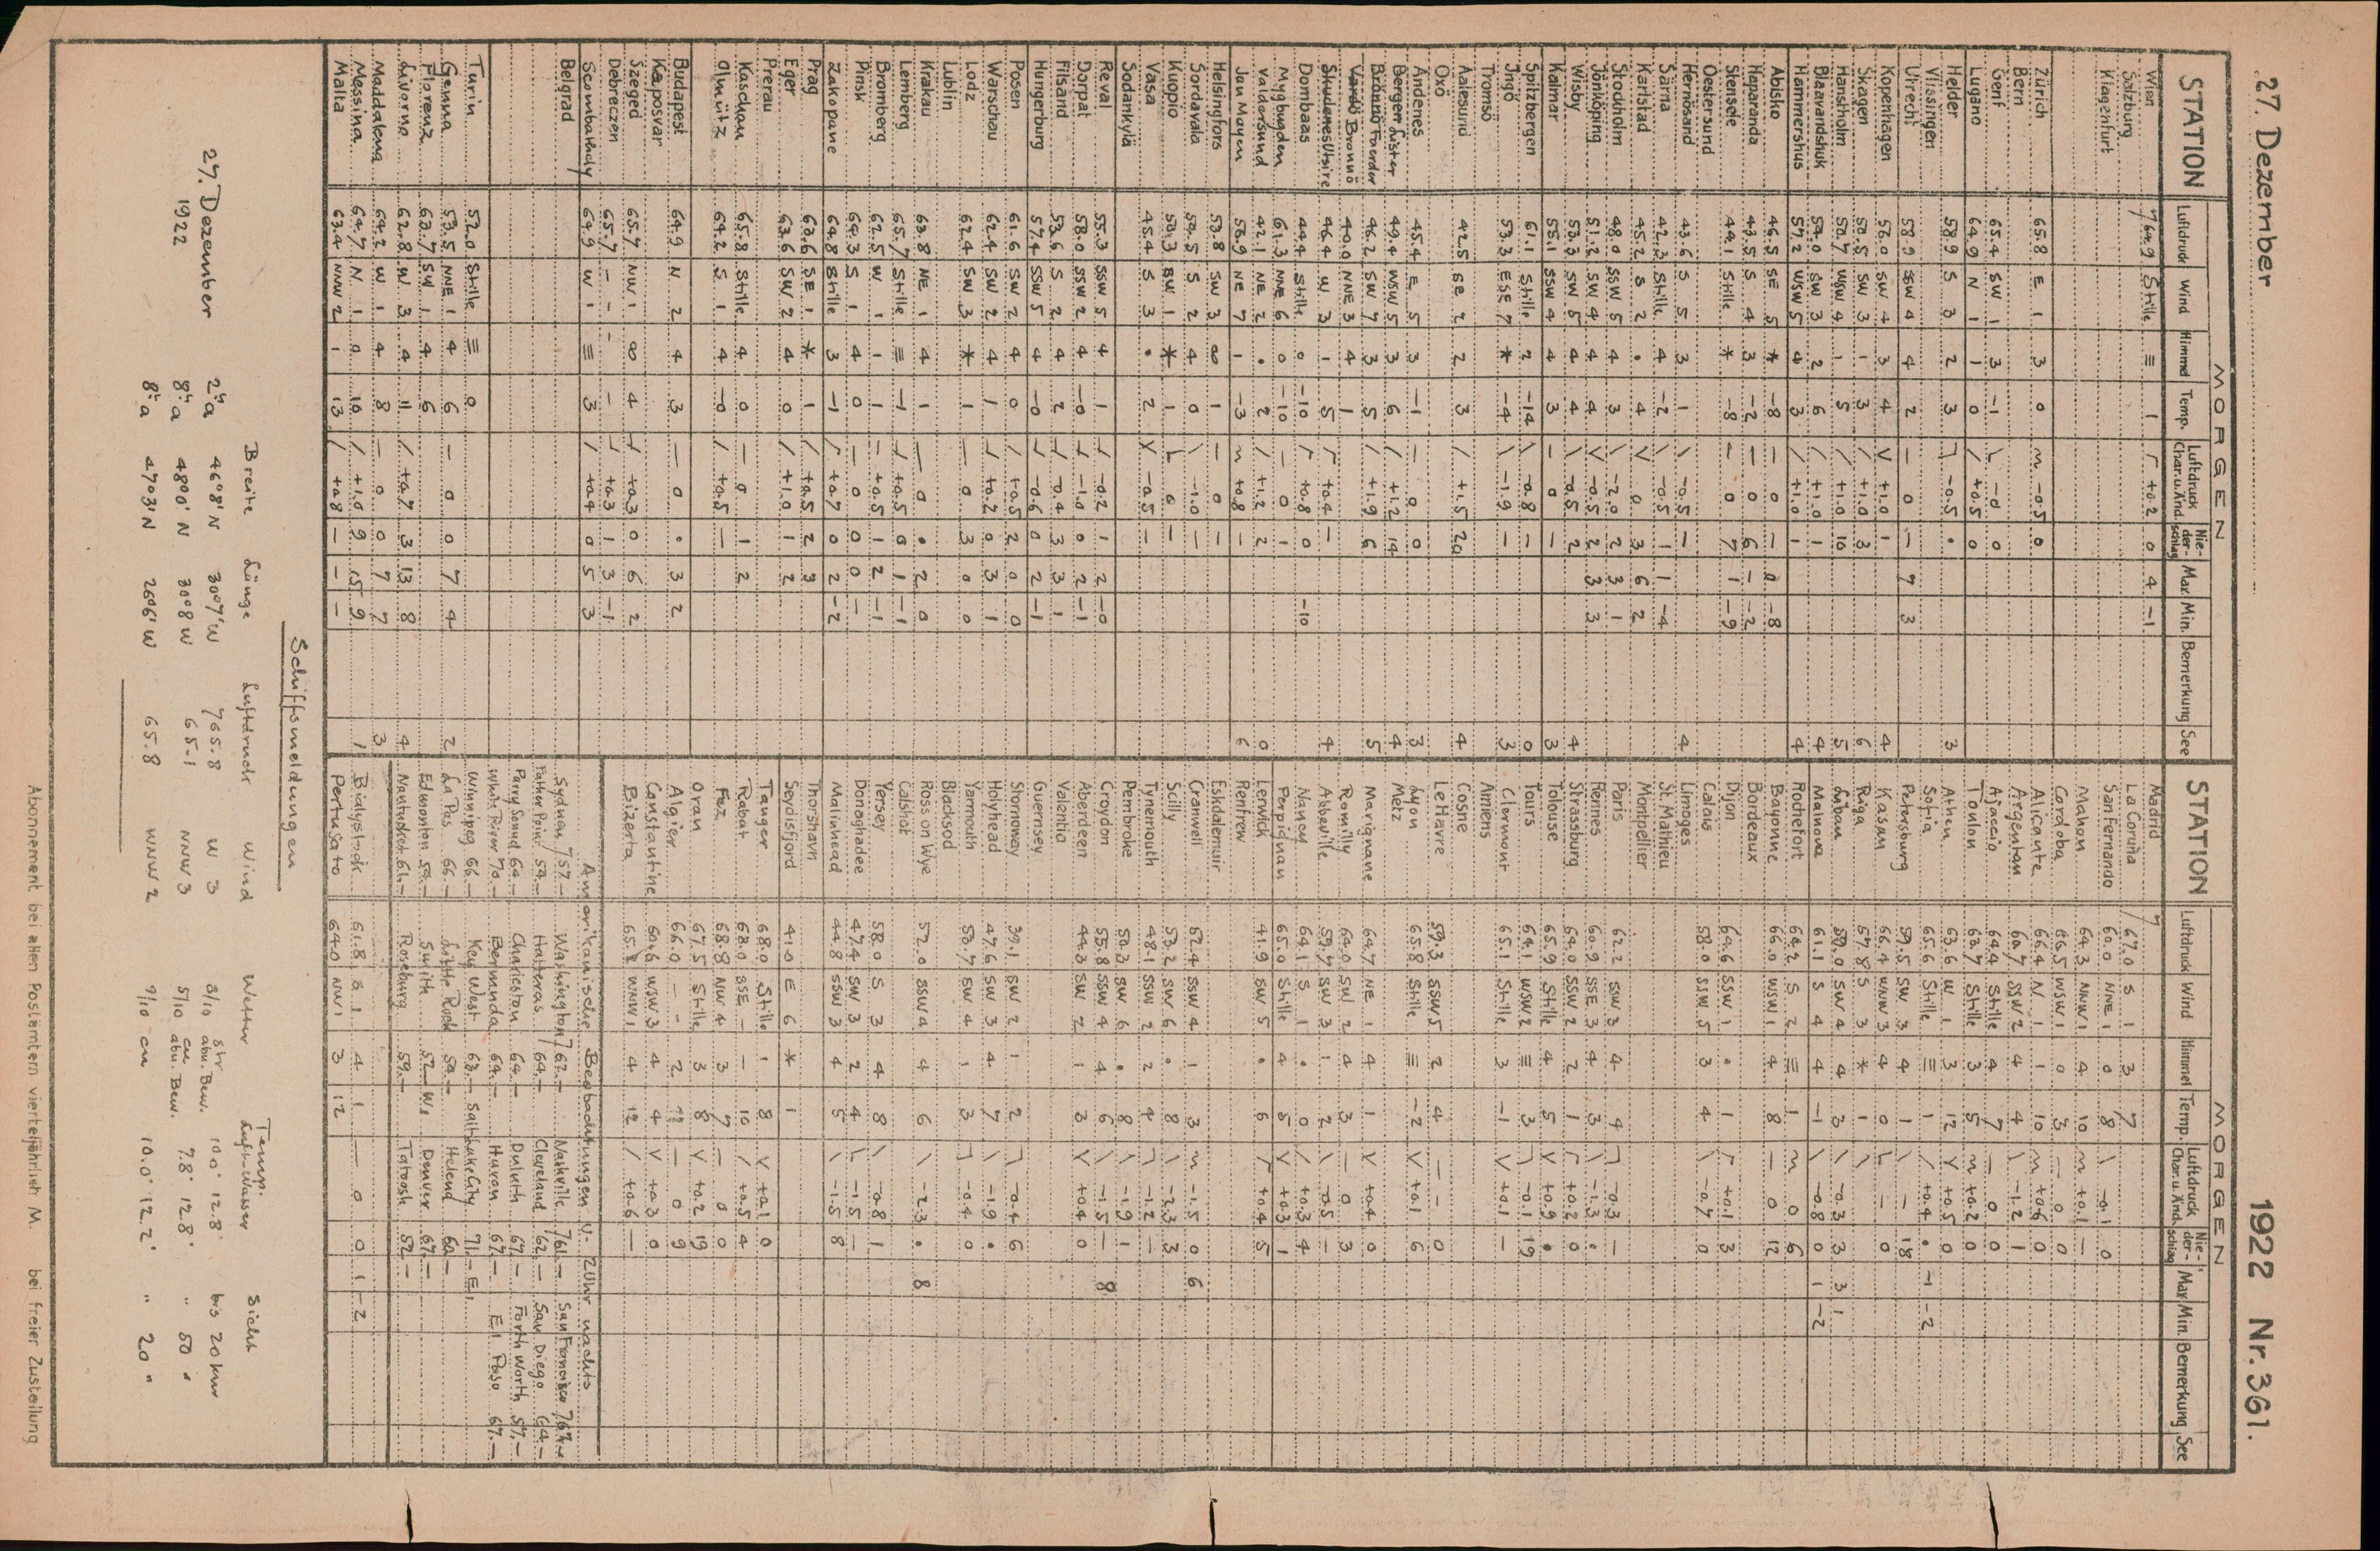 27. Dezember 1922 Nr. 361.
MORGEN
STATION Luftdruck Wind Himmel Temp. Luftdruck Char. u. Änd. Nie-der-schlag Max. Min. Bemerkung See
Wien 764.9 Stille ≡ 1 +0.2 0 4 -1
Salzburg
Klagenfurt
Zürich 65.8 E 1 3 0 -0.5 0
Bern
Genf 65.4 SW 1 3 -1 -0 0
Lugano 64.9 N 1 1 0 +0.5 0
Helder 58.9 S 3 2 3 -0.5 • 3
Vlissingen
Utrecht 58.9 SSW 4 4 2 — 0 — 7 3
Kopenhagen 56.0 SW 4 3 4 V +1.0 1 4
Skagen 50.5 SW 3 1 3 / +1.0 3 6
Hanstholm 50.7 WSW 4 1 5 / +1.0 10 5
Blaavandshuk 54.0 SW 3 2 6 / +1.0 1 4
Hammershus 57.2 WSW 5 4 3 / +1.0 1 4
Abisko 46.5 SE 5 * -8 — 0 — 0 -8
Haparanda 43.5 S 4 3 -2 — 0 6 — -2
Stensele 44.1 Stille * -8 — 0 7 1 -9
Oestersund
Hernösand 43.6 S 5 3 1 \ -0.5 — 4
Särna 42.3 Stille 4 -2 \ -0.5 1 1 -4
Karlstad 45.2 S 2 • 4 V 0 3 6 2
Stockholm 48.0 SSW 5 4 3 \ -2.0 2 3 1
Jönköping 51.2 SW 4 4 4 V -0.5 2 3 3
Wisby 53.3 SW 5 4 4 \ -0.5 2 4
Kalmar 55.1 SSW 4 4 3 — 0 — 3
Spitzbergen 61.1 Stille 2 -14 \ -0.8 — 0
Ingö 53.3 ESE 7 * -4 \ -1.9 — 3
Tromsö
Aalesund 42.5 SE 2 2 3 / +1.5 20 4
Oxö
Andenes 45.4 E 5 3 -1 — 0 0 3
Bergen Lister 49.4 WSW 5 3 6 / +1.2 14 4
Brönnö Faerder 46.2 SW 7 3 5 / +1.9 6 5
Vardö Brönnö 40.0 NNE 3 4 1
Skudenes Utsire 46.4 W 3 1 5 +0.4 — 4
Dombaas 44.4 Stille 0 -10 +0.8 0 -10
Myggbugden 61.3 NNE 6 0 -10 — 0 1
Valdersund 42.1 NE 2 • 2 / +1.2 2 0
Jan Mayen 56.9 NE 7 1 -3 +0.8 — 6
Helsingfors 53.8 SW 3 ∞ 1 — 0 —
Sordavala 54.5 S 2 4 0 \ -1.0 —
Kuopio 50.3 SW 1 * 1 0 —
Vasa 45.4 S 3 • 2 V -0.5 —
Sodankylä
Reval 55.3 SSW 5 4 1 -0.2 1 2 -0
Dorpat 58.0 SSW 2 4 -0 -1.0 0 2 -1
Filsand 53.6 S 2 4 2 -0.4 3 3 1
Hungerburg 57.4 SSW 5 4 -0 -0.6 0 2 -1
Posen 61.6 SW 2 4 0 / +0.5 2 0 0
Warschau 62.4 SW 2 4 1 +0.2 0 3 1
Lodz 62.4 SW 3 * 1 — 0 3 0 0
Lublin
Krakau 63.8 NE 1 4 1 — 0 • 2 0
Lemberg 65.7 Stille ≡ -1 +0.5 0 1 -1
Bromberg 62.5 W 1 1 1 +0.5 1 2 -1
Pinsk 64.3 S 1 4 0 — 0 0 0 —
Zakopane 64.8 Stille 3 -1 +0.7 0 2 -2
Prag 63.6 SE 1 * 1 / +0.5 2 3
Eger 63.6 SW 2 4 0 / +1.0 1 2
Prerau
Kaschau 65.8 Stille 4 0 — 0 1 2
Olmütz 64.2 S 1 4 -0 / +0.5 —
Budapest 64.9 N 2 4 3 — 0 • 3 2
Kaposvar
Szeged 65.7 NW 1 ∞ 4 +0.3 0 6 2
Debreczen 65.7 — — — — +0.3 1 3 -1
Scombathely 64.9 W 1 ≡ 3 / +0.4 0 5 3
Belgrad
Turin 52.0 Stille ≡ 0
Genua 53.5 NNE 1 4 6 — 0 0 7 4 2
Florenz 63.7 SW 1 4 6
Livorno 62.8 W 3 4 11 / +0.7 3 13 8 4
Maddalena 64.2 W 1 4 8 — 0 0 7 7 3
Messina 64.7 N 1 0 10 / +1.0 9 15 9 1
Malta 63.4 NNW 2 1 13 / +0.8 — — —
MORGEN
STATION Luftdruck Wind Himmel Temp. Luftdruck Char. u. Änd. Nie-der-schlag Max. Min. Bemerkung See
Madrid 7
La Coruña 67.0 S 1 3 7
San Fernando 60.0 NNE 1 0 8 \ -0.1 0
Mahon 64.3 NNW 1 4 10 +0.1 —
Cordoba 66.5 WSW 1 0 3 — 0 0
Alicante 66.4 N 1 1 10 +0.6 0
Argentan 60.7 SSW 2 4 4 \ -1.2 1
Ajaccio 64.4 Stille 4 7 — 0 0
Toulon 63.7 Stille 3 5 +0.2 0
Athen 63.6 W 1 3 12 V +0.5 0
Sofia 65.6 Stille ≡ 1 / +0.4 • -1 -2
Petersburg 59.5 SW 3 4 1 — — 18
Kasan 66.4 WNW 3 4 0 — 0
Riga 57.8 S 3 * 1 \
Liban 59.0 SW 4 4 3 \ -0.3 3 3 1
Malnova 61.1 S 4 4 -1 \ -0.8 0 1 -2
Rochefort 64.2 S 2 ≡ 1 0 6
Bayonne 66.0 WSW 1 4 8 — 0 12
Bordeaux
Dijon 64.6 SSW 1 • 1 +0.1 3
Calais 58.0 SSW 5 3 4 \ -0.7 0
Limoges
St. Mathieu
Montpellier
Paris 62.2 SSW 3 4 4 -0.3 —
Rennes 60.9 SSE 3 4 3 \ -1.3 •
Strassburg 64.0 SSW 2 2 1 +0.2 0
Tolouse 65.9 Stille 4 5 V +0.9 •
Tours 64.1 WSW 2 ≡ 3 -0.1 19
Clermont 65.1 Stille 3 -1 V +0.1 —
Amiens
Cosne
Le Havre 59.3 SSW 5 2 4 — — 0
Lyon 65.8 Stille ≡ -2 V +0.1 6
Metz
Marignane 64.7 NE 1 4 1 V +0.4 0
Romilly 64.0 SW 2 4 3 — 0 3
Abbeville 59.7 SW 3 1 2 \ -0.5 —
Nancy 64.1 S 1 • 0 / +0.3 4
Perpignan 65.0 Stille 4 5 V +0.3 1
Lerwick 41.9 SW 5 • 6 +0.4 5
Renfrew
Eskdalemuir
Cranwell 52.4 SSW 4 1 3 -1.5 0 6
Scilly 53.2 SW 6 • 8 \ -3.3 3
Tynemouth 48.1 SSW 2 2 4 \ -1.2 —
Pembroke 50.3 SW 6 • 8 \ -1.9 1
Croydon 55.8 SSW 4 4 6 \ -1.5 — 8
Aberdeen 44.3 SW 2 1 3 V +0.4 0
Valentia
Guernsey
Stornoway 39.1 SW 2 1 2 -0.4 6
Holyhead 47.6 SW 3 4 7 \ -1.9 •
Yarmouth 53.7 SW 4 1 3 -0.4 0
Blacksod
Ross on Wye 52.0 SSW 4 4 6 \ -2.3 • 8
Calshot
Yersey 58.0 S 3 4 8 \ -0.8 1
Donaghadee 47.4 SW 3 2 4 -1.5 —
Malinhead 44.8 SSW 3 4 5 \ -1.5 8
Thorshavn
Seydisfjord 41.0 E 6 * 1
Tanger 68.0 Stille 1 8 V +0.1 0
Rabat 68.0 SSE — — 10 / +0.5 4
Fez 68.8 NW 4 3 7 — 0 0
Oran 67.5 Stille 3 8 V +0.2 19
Algier 66.0 — — 2 — 0 9
Constantine 60.6 WSW 3 4 4 V +0.3 0
Bizerta WNW 1 4 12 / +0.6 —
Amerikanische Beobachtungen v. 2 Uhr nachts
Sydney 757.— Washington 762.— Nashville 761.— San Francisco 767.—
Father Point 59.— Hatteras 64.— Cleveland 62.— San Diego 64.—
Parry Sound 64.— Charleston 64.— Duluth 67.— Forth Worth 57.—
White River 70.— Bermuda 64.— Huron 67.— El Paso 67.—
Winnipeg 66.— Key West 63.— Salt Lake City 71.— E1.
La Pas 66.— Little Rock 59.— Helena 60.—
Edmonton 59.— Smith 57.— W1 Denver 67.—
Nantucket 61.— Roseburg 59.— Tatoosh 52.—
Bialystock 61.8 S 1 4 1 — 0 0 1 -2
Pertusato 64.0 NW 1 3 12
Schiffsmeldungen
Breite Länge Luftdruck Wind Wetter Temp. Luft-Wasser Sicht
27. Dezember 1922
2h a 46°8' N 30°7' W 765.8 W 3 8/10 str abw. Bew. 10.0° 12.8° bis 20 km
8h a 48°0' N 30°8 W 65.1 NNW 3 5/10 cu abw. Bew. 7.8° 12.8° " 50 "
8h a 47°3' N 26°6' W 65.8 WNW 2 9/10 cu 10.0° 12.2° " 20 "
Abonnement bei allen Postämtern vierteljährlich M. bei freier Zustellung